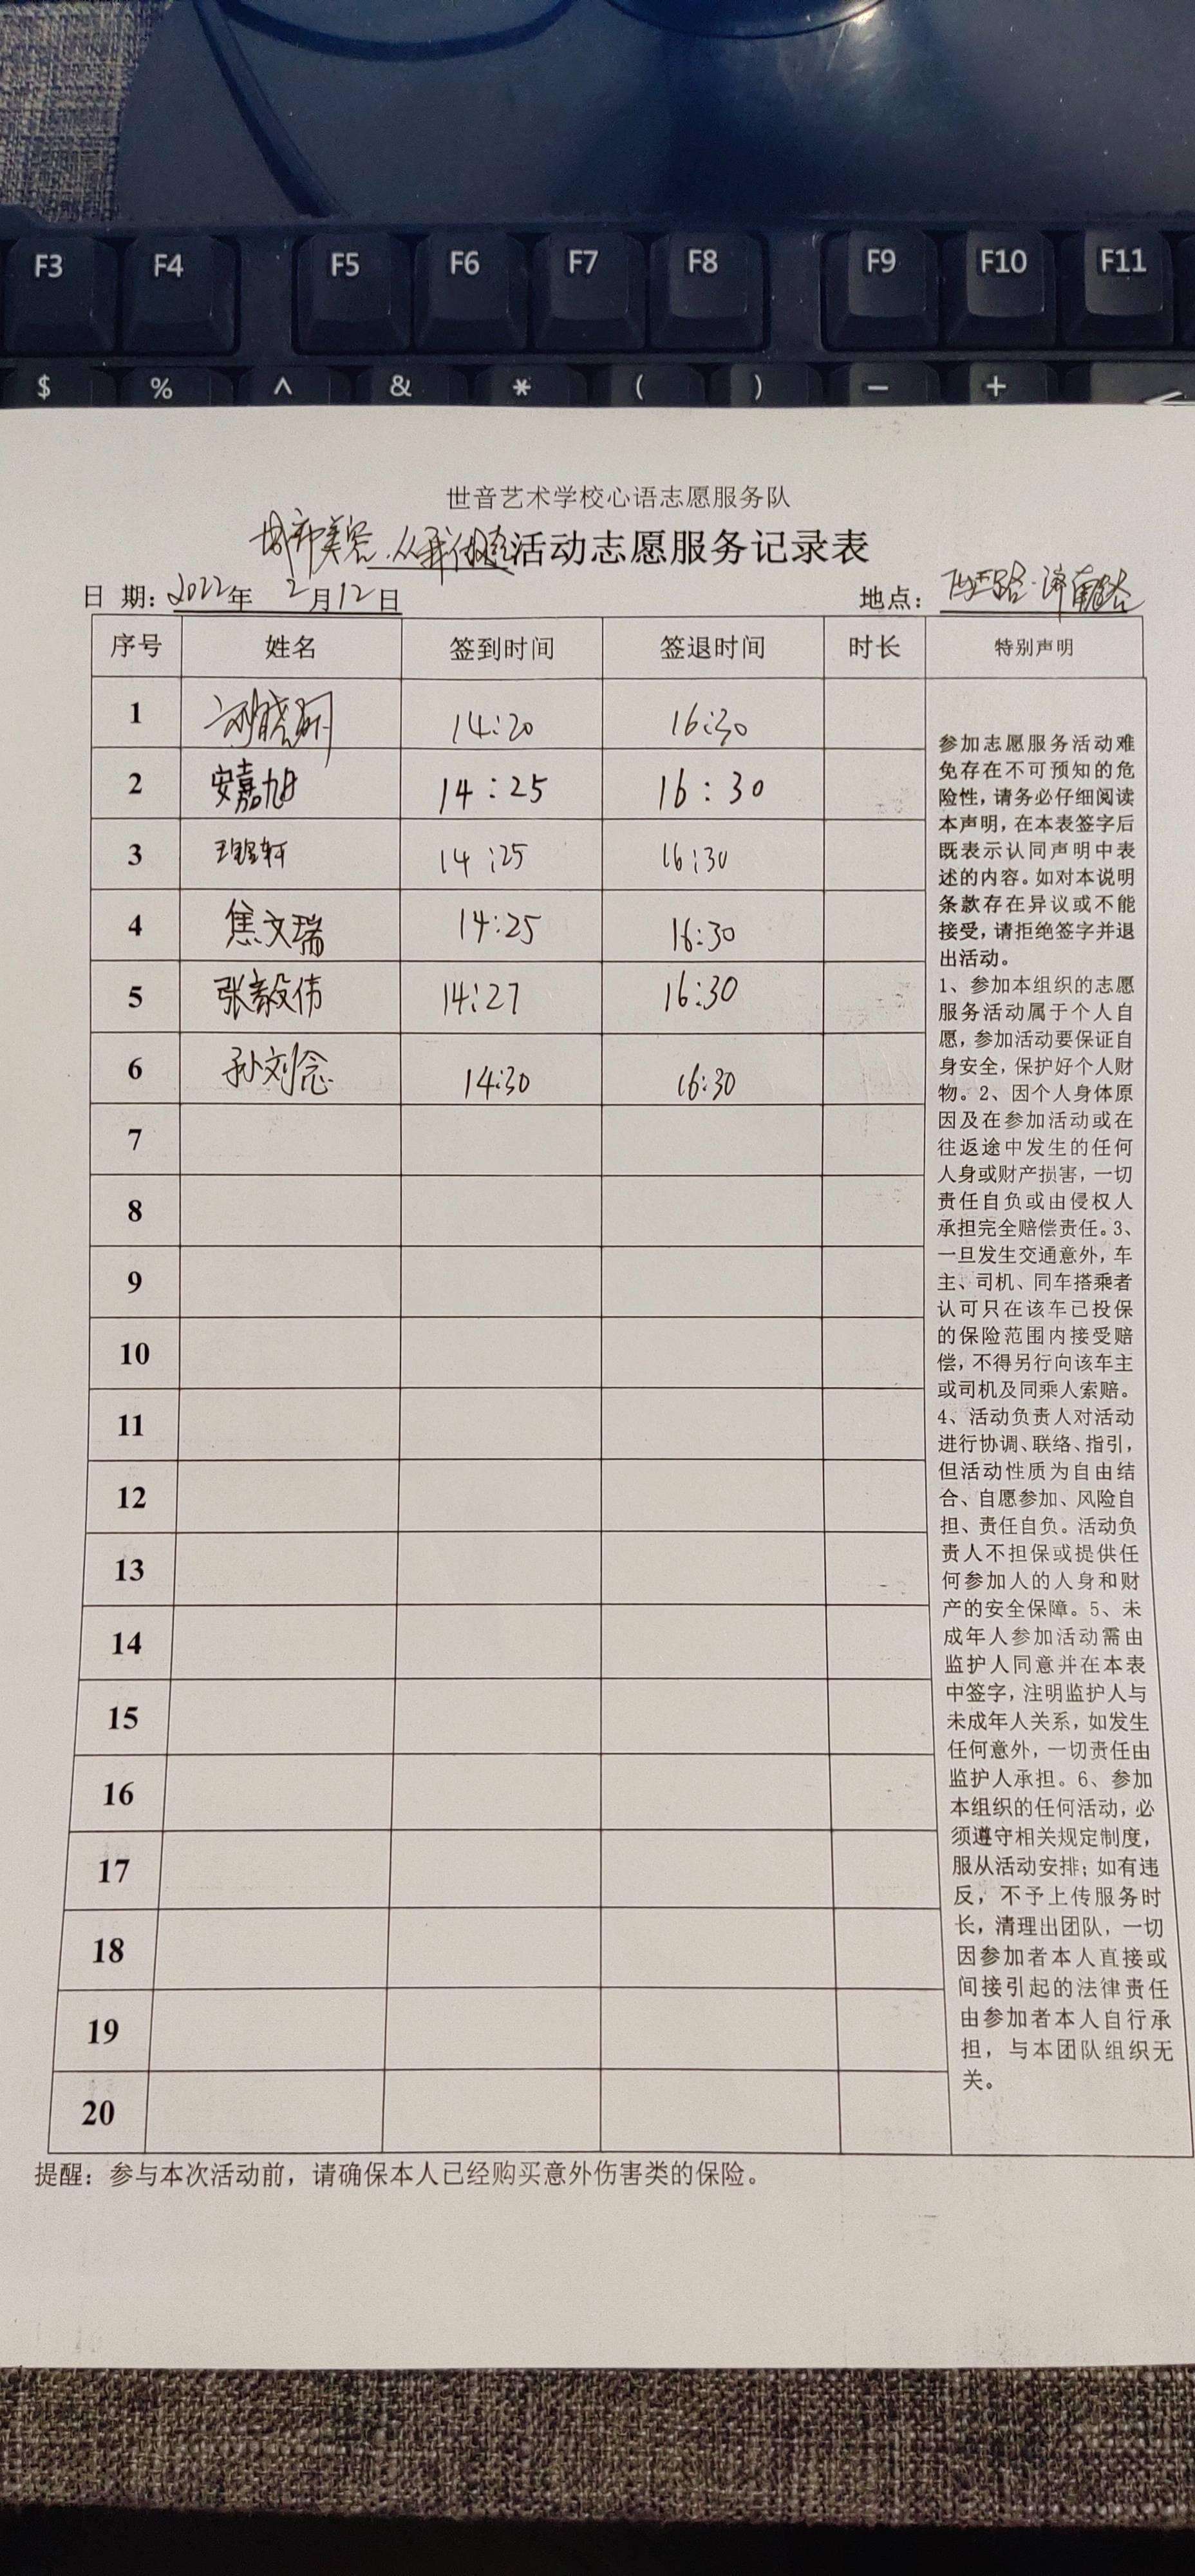 F3 F4 F5 F6 F7 F8 F9 F10 F11
$ % ^ & * ( ) − + ←
世音艺术学校心语志愿服务队
城市美容 从我做起活动志愿服务记录表
日 期: 2022年 2月12日 地点: 济南路
序号 姓名 签到时间 签退时间 时长 特别声明
1 14:20 16:30
2 安嘉旭 14:25 16:30
3 14:25 16:30
4 焦文瑞 14:25 16:30
5 张毅伟 14:27 16:30
6 孙刘念 14:30 16:30
7
8
9
10
11
12
13
14
15
16
17
18
19
20
参加志愿服务活动难
免存在不可预知的危
险性,请务必仔细阅读
本声明,在本表签字后
既表示认同声明中表
述的内容。如对本说明
条款存在异议或不能
接受,请拒绝签字并退
出活动。
1、参加本组织的志愿
服务活动属于个人自
愿,参加活动要保证自
身安全,保护好个人财
物。2、因个人身体原
因及在参加活动或在
往返途中发生的任何
人身或财产损害,一切
责任自负或由侵权人
承担完全赔偿责任。3、
一旦发生交通意外,车
主、司机、同车搭乘者
认可只在该车已投保
的保险范围内接受赔
偿,不得另行向该车主
或司机及同乘人索赔。
4、活动负责人对活动
进行协调、联络、指引,
但活动性质为自由结
合、自愿参加、风险自
担、责任自负。活动负
责人不担保或提供任
何参加人的人身和财
产的安全保障。5、未
成年人参加活动需由
监护人同意并在本表
中签字,注明监护人与
未成年人关系,如发生
任何意外,一切责任由
监护人承担。6、参加
本组织的任何活动,必
须遵守相关规定制度,
服从活动安排;如有违
反,不予上传服务时
长,清理出团队,一切
因参加者本人直接或
间接引起的法律责任
由参加者本人自行承
担,与本团队组织无
关。
提醒:参与本次活动前,请确保本人已经购买意外伤害类的保险。